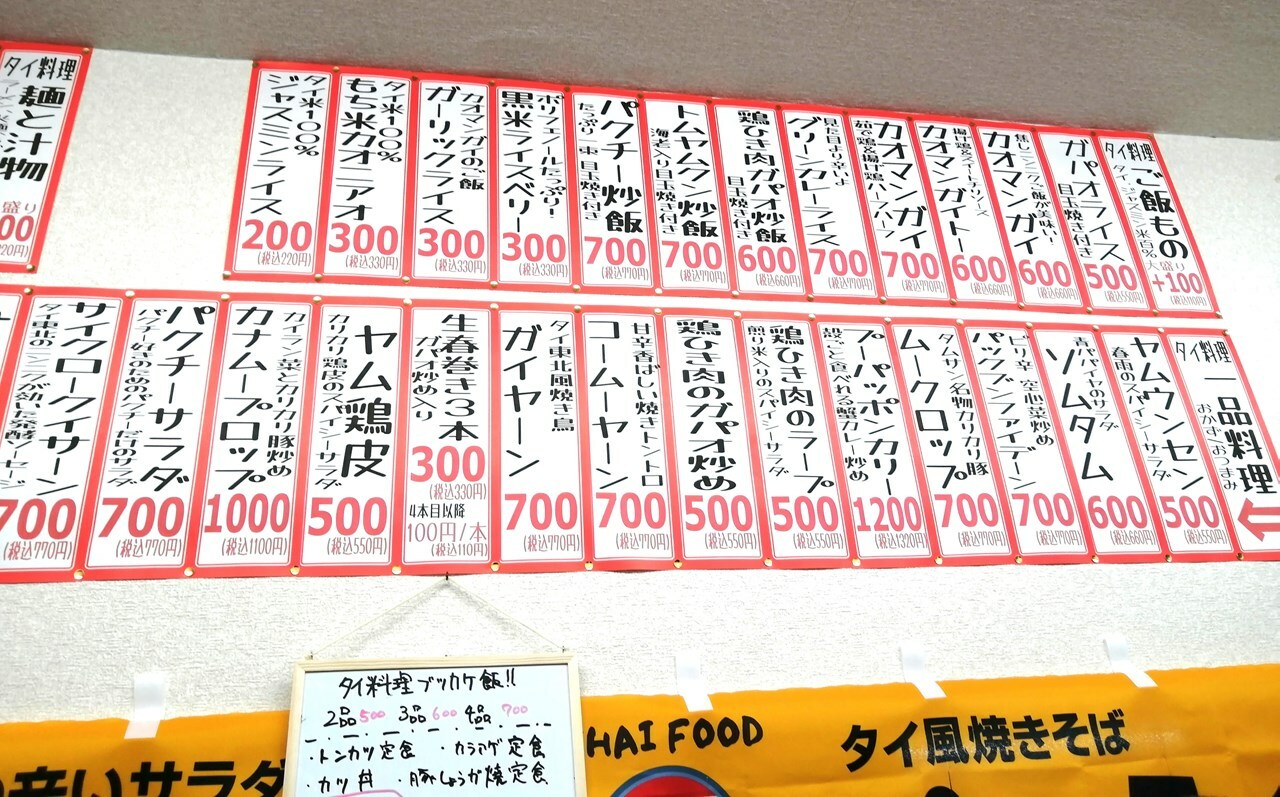 タイ料理
ご飯もの
大盛り
+100
(税込110円)
ガパオライス
目玉焼き付き
500
(税込550円)
カオマンガイ
600
(税込660円)
カオマンガイトー
600
(税込660円)
カオマンガイ
茹で鶏&揚げ鶏ハーフハーフ
700
(税込770円)
見た目より辛いよ
グリーンカレーライス
700
(税込770円)
鶏ひき肉ガパオ炒飯
目玉焼き付き
600
(税込660円)
トムヤムクン炒飯
海老入り目玉焼き付き
700
(税込770円)
パクチー炒飯
たっぷり
目玉焼き付き
700
(税込770円)
ポリフェノールたっぷり!
黒米ライスベリー
300
(税込330円)
カオマンガイのご飯
ガーリックライス
300
(税込330円)
タイ米100%
もち米カオニアオ
300
(税込330円)
タイ米100%
ジャスミンライス
200
(税込220円)
タイ料理
麺と汁物
盛り
タイ料理
一品料理
おかずおつまみ
ヤムウンセン
春雨のスパイシーサラダ
500
(税込550円)
青パパイヤのサラダ
ソムタム
600
(税込660円)
ピリ辛 空心菜炒め
パックブンファイデーン
700
(税込770円)
タムサン名物カリカリ豚
ムークロップ
700
(税込770円)
プーパッポンカリー
殻ごと食べれる蟹カレー炒め
1200
(税込1320円)
鶏ひき肉のラープ
煎り米入りのスパイシーサラダ
500
(税込550円)
鶏ひき肉のガパオ炒め
500
(税込550円)
甘辛香ばしい焼きトントロ
コームーヤーン
700
(税込770円)
タイ東北風焼き鳥
ガイヤーン
700
(税込770円)
生春巻き3本
ガパオ炒め入り
300
(税込330円)
4本目以降
100円/本
(税込110円)
ヤム鶏皮
カリカリ鶏皮のスパイシーサラダ
500
(税込550円)
カイラン菜とカリカリ豚炒め
カナムークロップ
1000
(税込1100円)
パクチーサラダ
パクチー好きのためのパクチーだけのサラダ
700
(税込770円)
サイクロークイサーン
タイ東北のニンニクが効いた発酵ソーセージ
700
(税込770円)
タイ料理ブッカケ飯!!
2品500 3品600 4品700
・トンカツ定食 ・カラアゲ定食
・カツ丼 ・豚しょうが焼定食
HAI FOOD
タイ風焼きそば
辛いサラダ